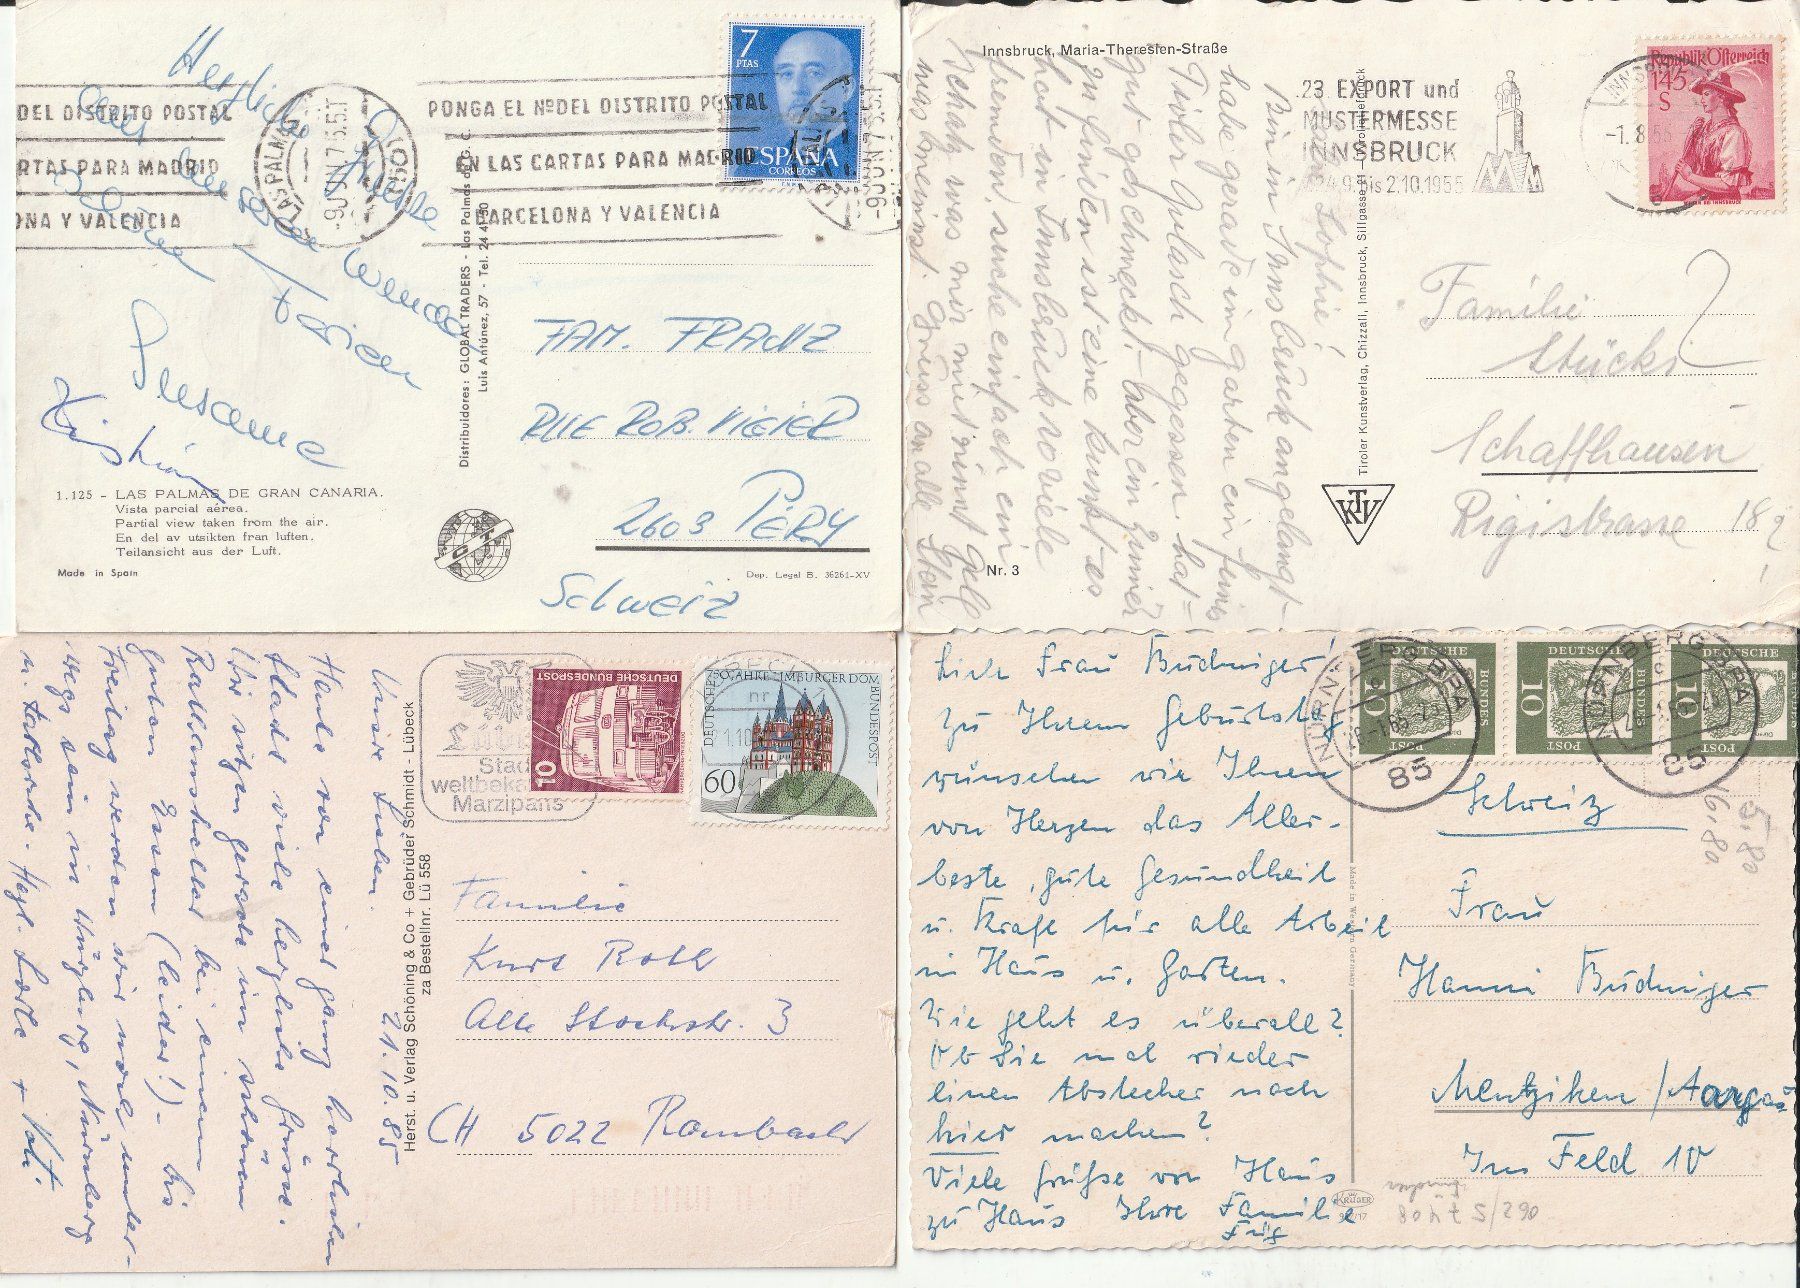 DEL DISTRITO POSTAL
RTAS PARA MADRID
ONA Y VALENCIA
LAS PALMAS
-9 JUN 75
PONGA EL Nº DEL DISTRITO POSTAL
EN LAS CARTAS PARA MADRID
BARCELONA Y VALENCIA
7
PTAS
ESPAÑA
CORREOS
Herzliche Grüsse
aus
Ferien
Susanne
Distribuidores: GLOBAL TRADERS - Las Palmas de G. C.
Luis Antúnez, 57 - Tel. 24 41 30
FAM. FRANZ
RUE ROB. VIEIER
2603 PÉRY
Schweiz
1.125 - LAS PALMAS DE GRAN CANARIA.
Vista parcial aérea.
Partial view taken from the air.
En del av utsikten fran luften.
Teilansicht aus der Luft.
Made in Spain
Dep. Legal B. 36261-XV
Innsbruck, Maria-Theresien-Straße
23 EXPORT und
MUSTERMESSE
INNSBRUCK
24.9. bis 2.10.1955
-1.8.55
Republik Österreich
1·45
S
Sophie!
Bin in Innsbruck angelangt-
habe gerade im garten ein feines
Tiroler Gulasch gegessen hat =
gut geschmeckt - aber ein Zimmer
zu finden ist eine kunst es
hat in Innsbruck so viele
Fremden, suche einfach ein
was meinst. Gruss an alle
Tiroler Kunstverlag, Chizzali, Innsbruck, Sillgasse 21
Familie
Stücki
Schaffhausen
Rigistrasse 18
TKV
Nr. 3
Lübeck
Stadt
weltbeka
Marzipans
10
DEUTSCHE BUNDESPOST
750 JAHRE LIMBURGER DOM
DEUTSCHE BUNDESPOST
60
21.10.85
Unsere Lieben.
Heute von einer ganz herrlichen
Stadt viele herzliche Grüsse.
Wir sitzen gerade im schönen
Rathauskeller bei einem
guten Essen (leider!) - bis
Freitag werden wir noch unter-
wegs sein in Würzburg, Nürnberg
u. Karlsruhe. Hzgl.
Herst. u. Verlag Schöning & Co + Gebrüder Schmidt - Lübeck
za Bestellnr. Lü 558
Familie
Kurt Roth
Alte Stockstr. 3
CH 5022 Rombach
NÜRNBERG BPA
85
DEUTSCHE BUNDESPOST
10
DEUTSCHE BUNDESPOST
10
DEUTSCHE BUNDESPOST
10
NÜRNBERG BPA
85
5.80
16.80
Liebe Frau Büdniger!
Zu Ihrem Geburtstag
wünschen wir Ihnen
von Herzen das Aller-
beste, gute Gesundheit
u. Kraft für alle Arbeit
in Haus u. Garten.
Wie geht es überall?
Ob Sie mal wieder
einen Abstecher nach
hier machen?
Viele Grüße von Haus
zu Haus Ihre Familie
Made in Western Germany
KRÜGER
Schweiz
Frau
Hanni Büdniger
Menziken / Aargau
Im Feld 10